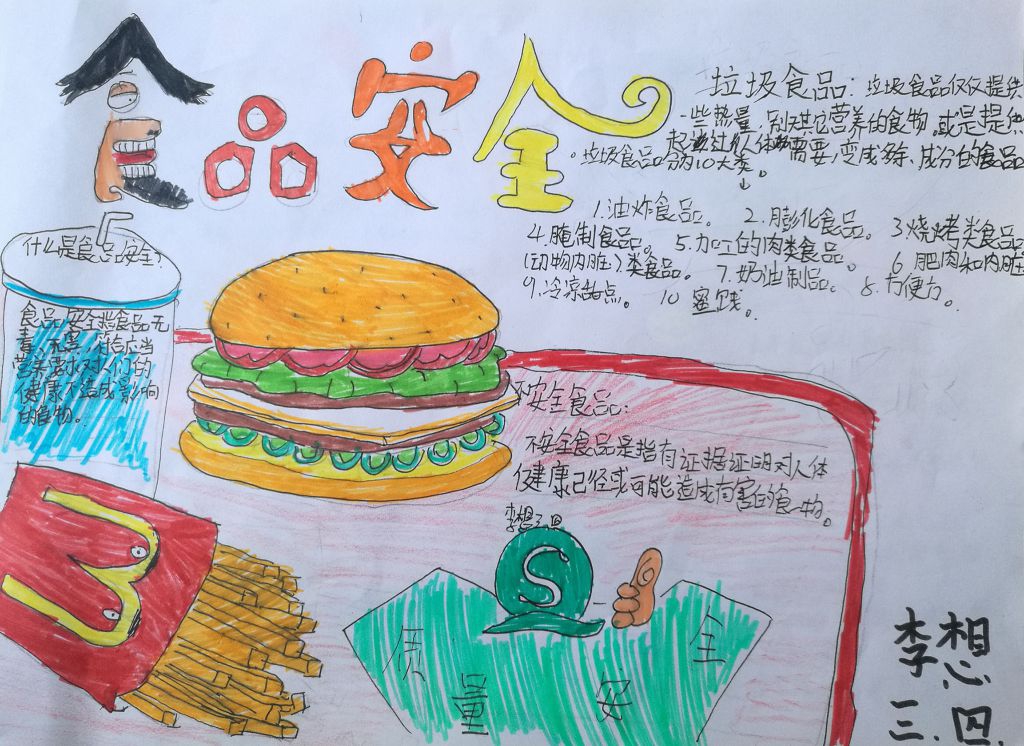 食品安全
垃圾食品：垃圾食品仅仅提供
一些热量，别无其它营养的食物，或是提供
起过人体需要，变成多余成分的食品
。垃圾食品分为10大类。
1.油炸食品。 2.膨化食品。 3.烧烤类食品
4.腌制食品。 5.加工的肉类食品。 6.肥肉和内脏
(动物内脏)类食品。 7.奶油制品。 8.方便方。
9.冷凉甜点。 10 蜜饯。
什么是食品安全?
食品安全指食品无
毒、无害、符合应当
营养要求,对人们的
健康不造成影响
的食物。
不安全食品：
不安全食品是指有证据证明对人体
健康已经或可能造成有害的食物。
李想三四
S
质量安全
李想
三.四.